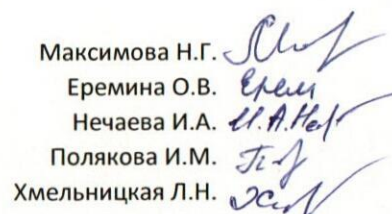 Максимова Н.Г.
Еремина О.В. Ерем
Нечаева И.А.
Полякова И.М.
Хмельницкая Л.Н.